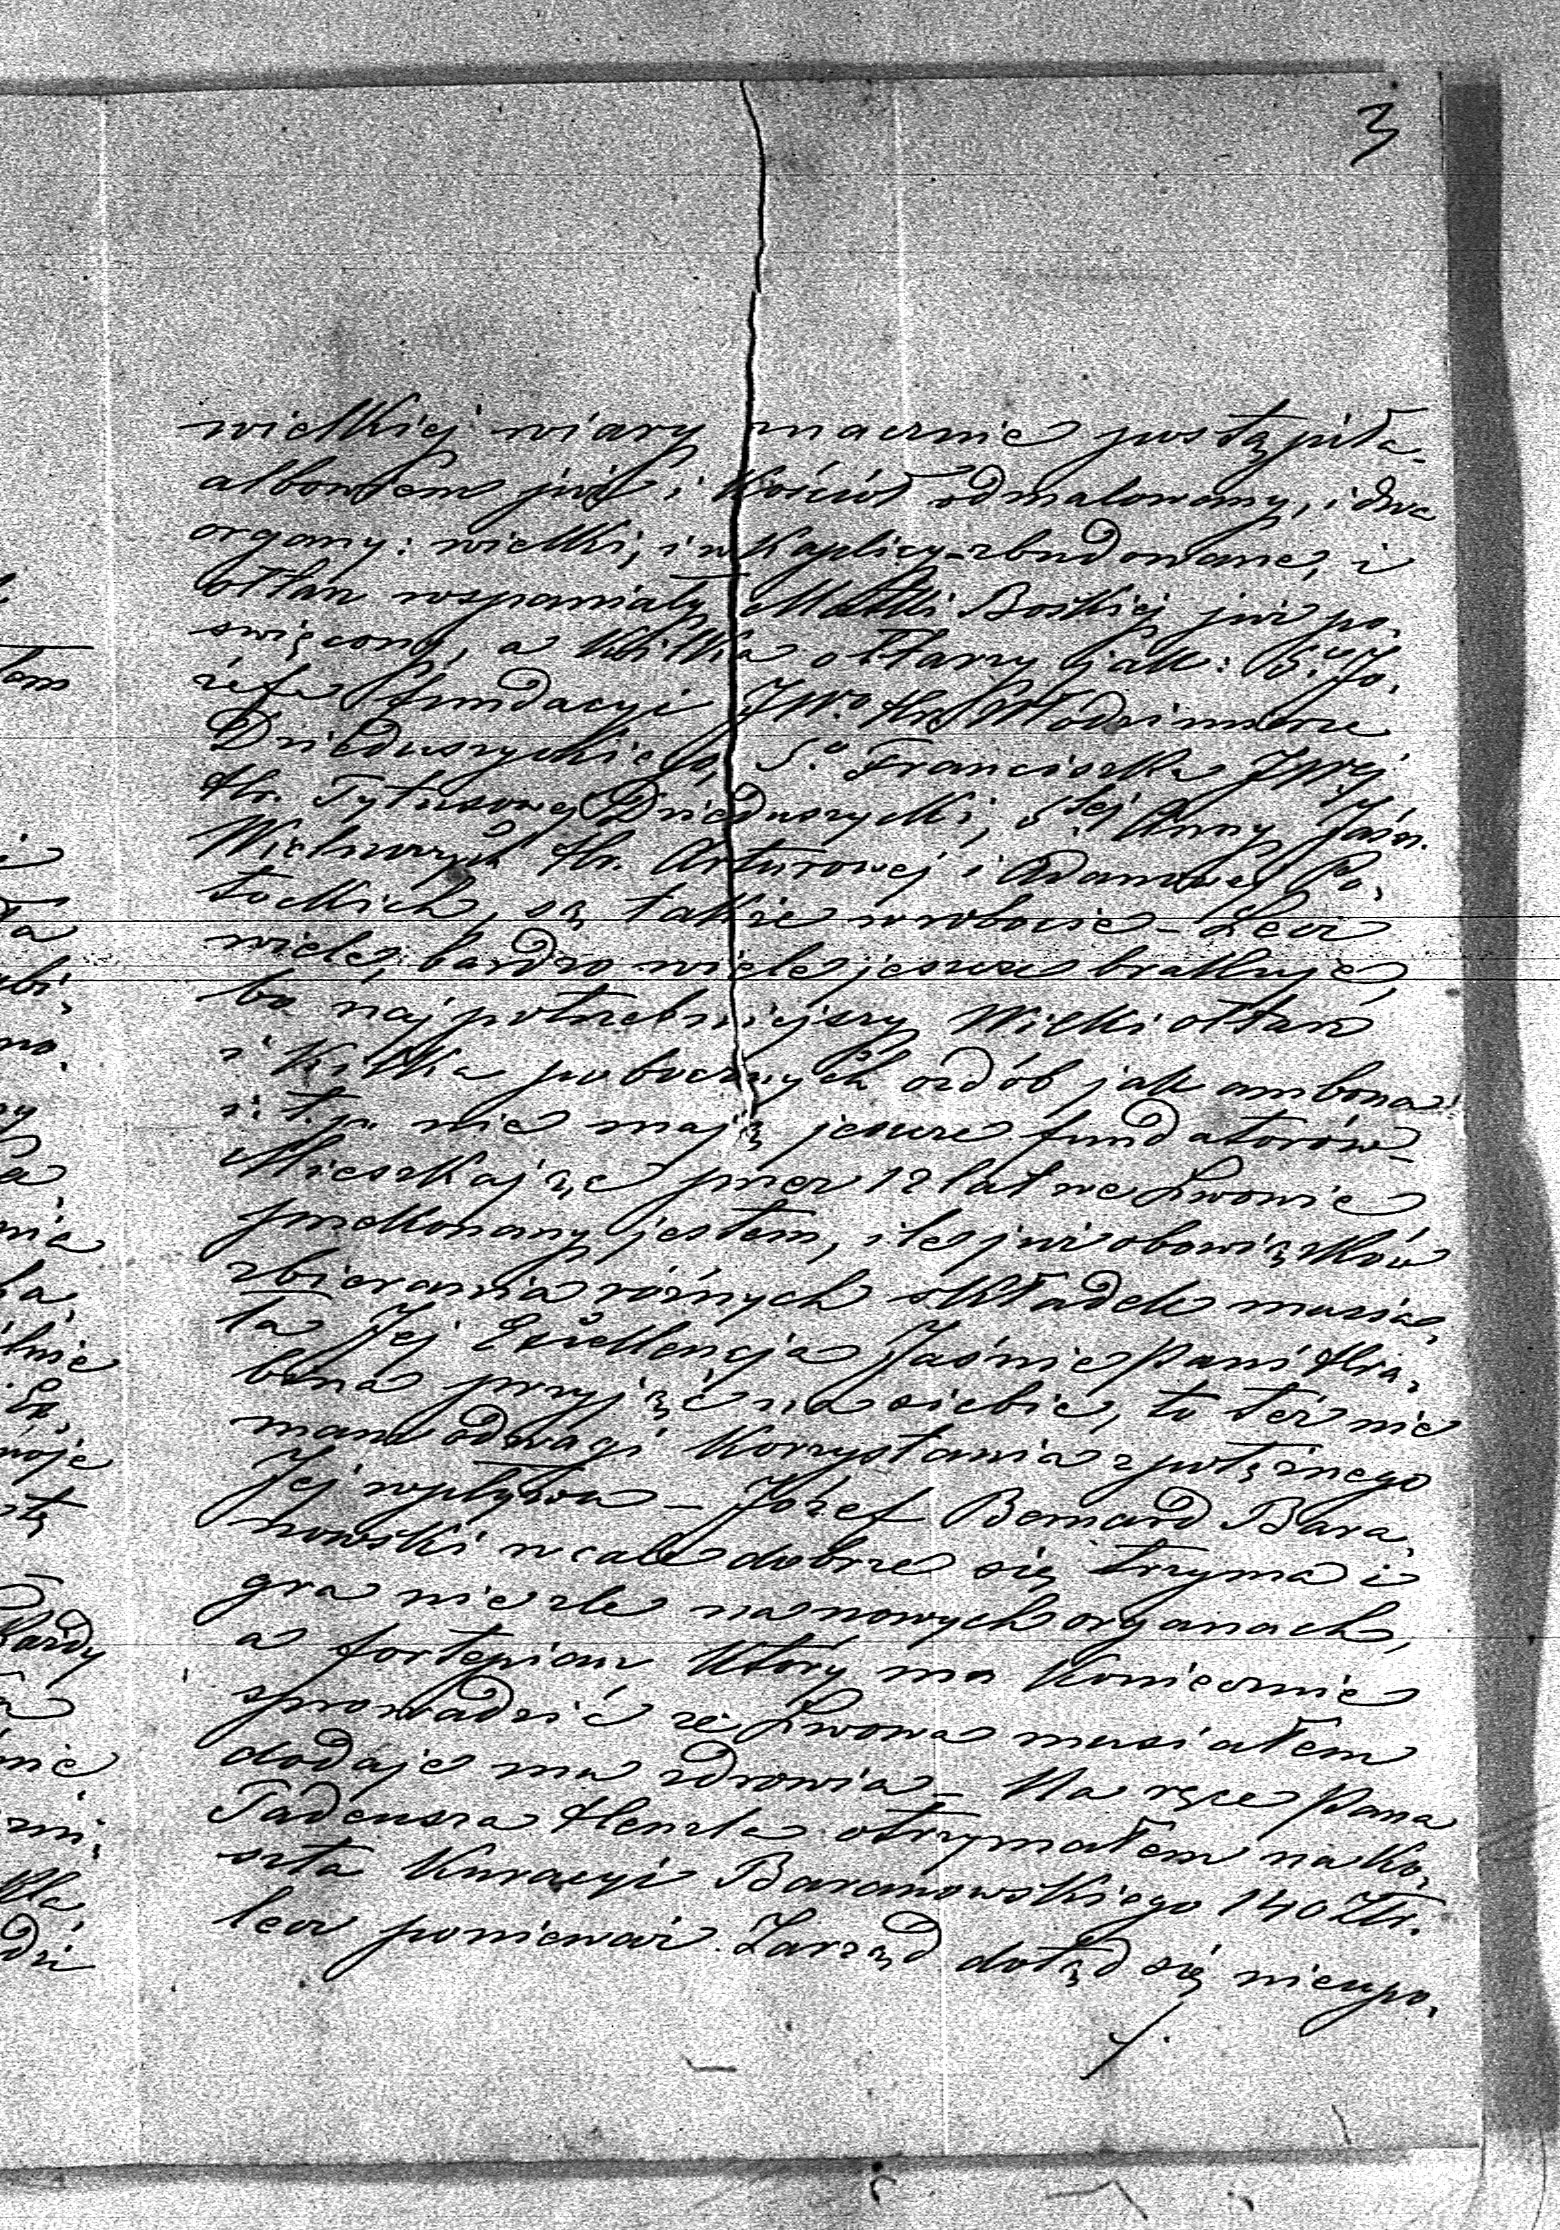 3
wielkiej wiary znacznie postąpiła
albowiem już i Kościół odmalowany, i dwa
organy: wielki, i w Kaplicy zbudowane, i
ołtarz wspaniały Matki Boskiej już po,
święcony, a kilka ołtarzy jak: Ś.go Jó,
zefa fundacyi JW.o Hr. Włodzimierza
Dzieduszyckiego, S.o Franciszka JWej
Hr. Tytusowej Dzieduszycki, Stej Anny Jaśn.
Wielmożnych Hr. Arturowej i Adamowej Po,
tockich, są także w robocie – Lecz
wiele, bardzo wiele jeszcze brakuje,
bo najpotrzebniejszy Wielki ołtarz
i Kilka pobocznych ozdób jak ambona
i t.p. nie mają jeszcze fundatorów –
Mieszkając przez 12 lat we Lwowie
przekonany jestem, ile już obowiązków
zbierania różnych składek musia,
ła Jej Excellencja Jaśnie Pani Hra,
bina przyjąć na siebie, to też nie
mam odwagi korzystania z potężnego
Jej wpływu – Józef Bernard Bara,
nowski wcale dobrze się trzyma i
gra nieźle na nowych organach,
a fortepian który mu koniecznie
sprowadzić ze Lwowa musiałem
dodaje mu zdrowia – Na ręce Pana
Tadeusza otrzymałem na Ko,
szta Kuracyi Baranowskiego 140 Złr.
lecz ponieważ Zarząd dotąd się nieupo,
/.